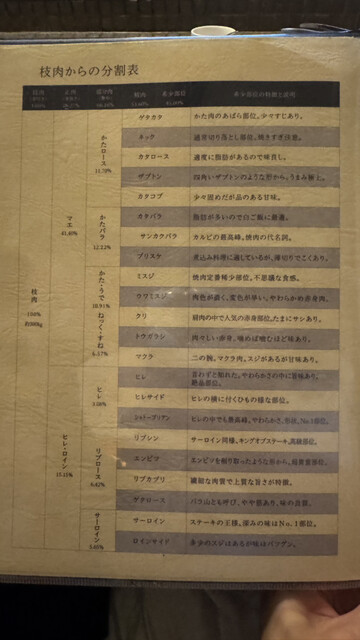 枝肉からの分割表
枝肉
正肉
部分肉
精肉
希少部位
希少部位の特徴と適用
枝肉
100%
マエ
ヒレ・ロイン
かたロース
かたバラ
12.22%
かた・うで
10.91%
ねっく・すね
ヒレ
リブロース
サーロイン
ゲタカタ
かた肉のあばら部位。少々すじあり。
ネック
通常切り落とし部位。焼きすぎ注意。
カタロース
適度に脂肪があるので味良し。
ザブトン
四角いザブトンのような形から。うまみ極上。
カタコブ
少々固めだが品のある甘味。
カタバラ
脂肪が多いので白ご飯に最適。
サンカクバラ
カルビの最高峰。焼肉の代名詞。
ブリスケ
煮込み料理に適しているが、薄切りでこくあり。
ミスジ
焼肉定番稀少部位。不思議な食感。
ウワミスジ
肉色が濃く、変色が早い。やわらかめ赤身肉。
クリ
肩肉の中で人気の赤身部位。たまにサシあり。
トウガラシ
肉々しい赤身。噛めば噛むほど味あり。
マクラ
二の腕。マクラ肉。スジがあるが甘味あり。
ヒレ
言わずと知れた。やわらかさの中に旨味あり。
絶品部位。
ヒレサイド
ヒレの横に付くひもの様な部位。
シャトーブリアン
ヒレの中でも最高峰。やわらかさ、形状、No.1部位。
リブシン
サーロイン同様。キングオブステーキ。高級部位。
エンピツ
エンピツを削り取ったような形から。超貴重部位。
リブカブリ
繊細な肉質で上質な旨さが特徴。
ゲタロース
バラ山とも呼び、やや筋あり、味の良質。
サーロイン
ステーキの王様。深みの味はNo.1部位。
ロインサイド
多少のスジはあるが味はバツグン。